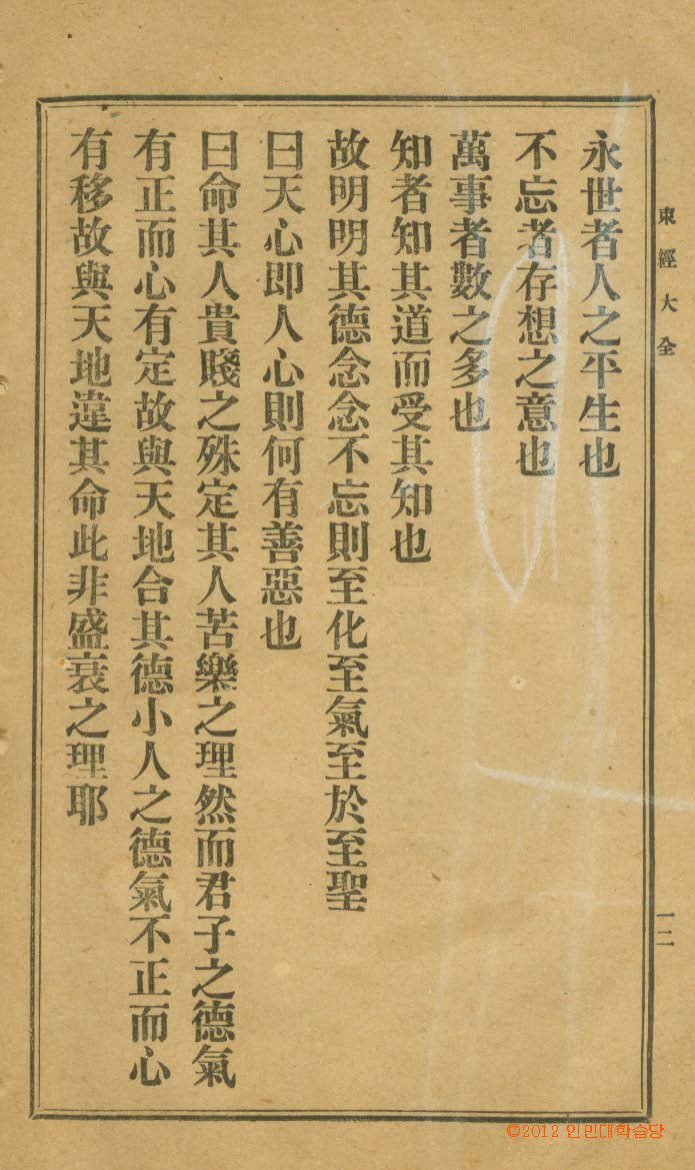 東經大全
永世者人之平生也
不忘者存想之意也
萬事者數之多也
知者知其道而受其知也
故明明其德念念不忘則至化至氣至於至聖
曰天心即人心則何有善惡也
曰命其人貴賤之殊定其人苦樂之理然而君子之德氣
有正而心有定故與天地合其德小人之德氣不正而心
有移故與天地違其命此非盛衰之理耶
一二
©2012 인민대학습당